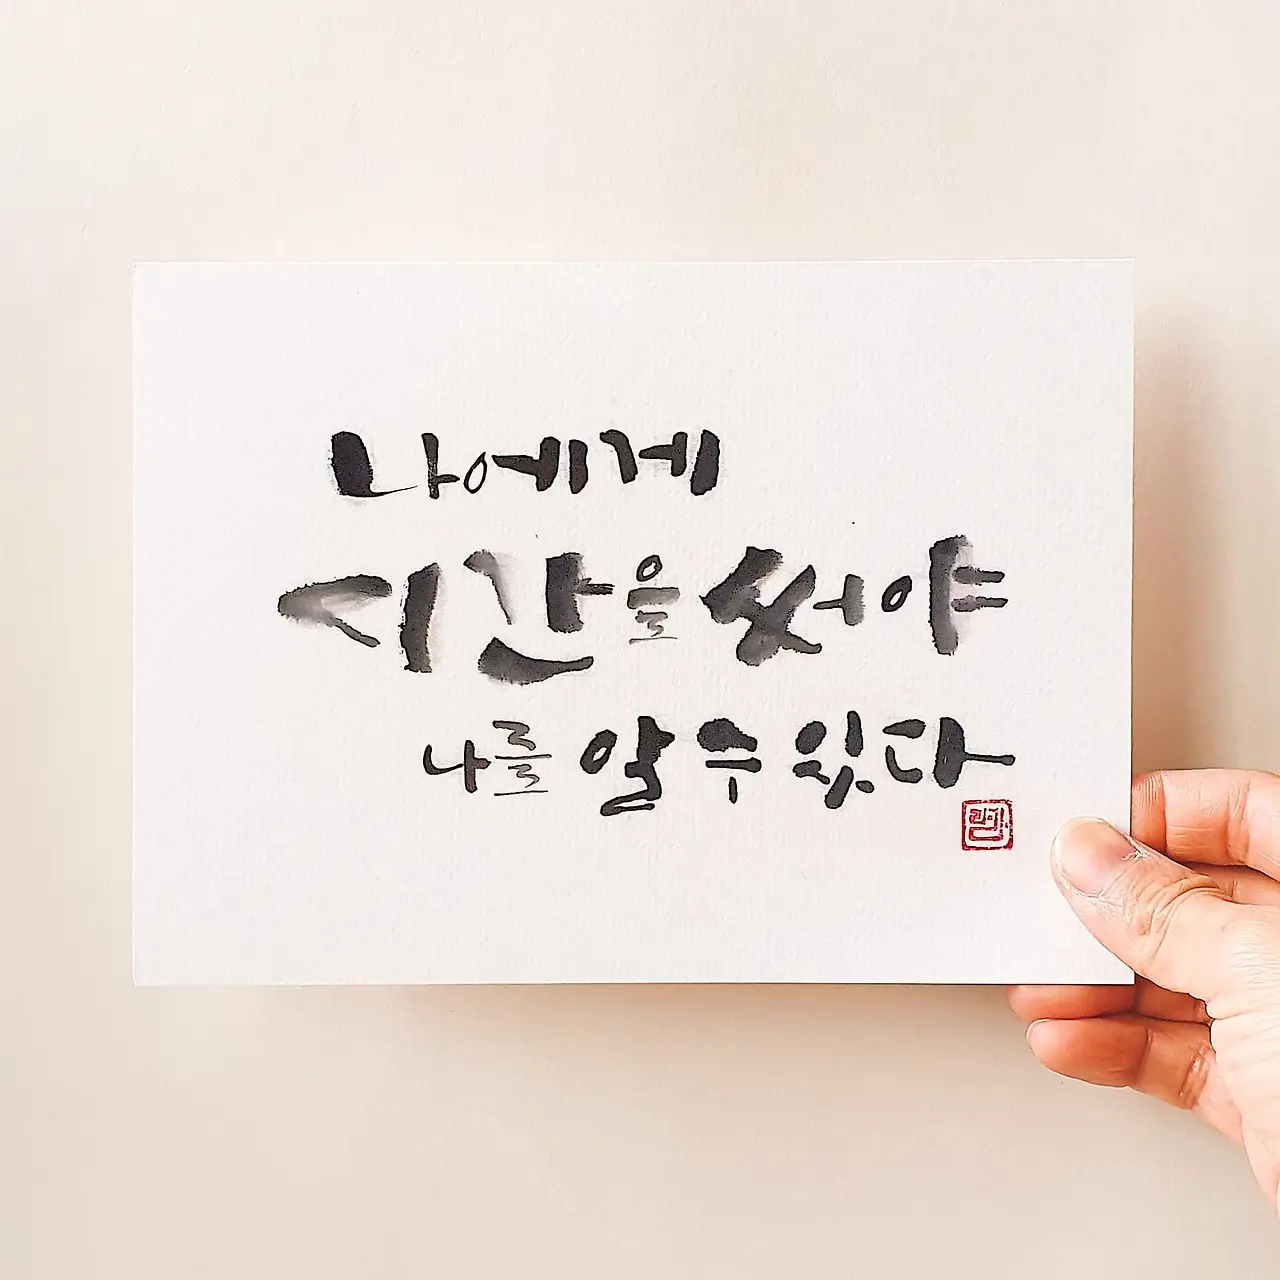 나에게
시간을 써야
나를 알 수 있다